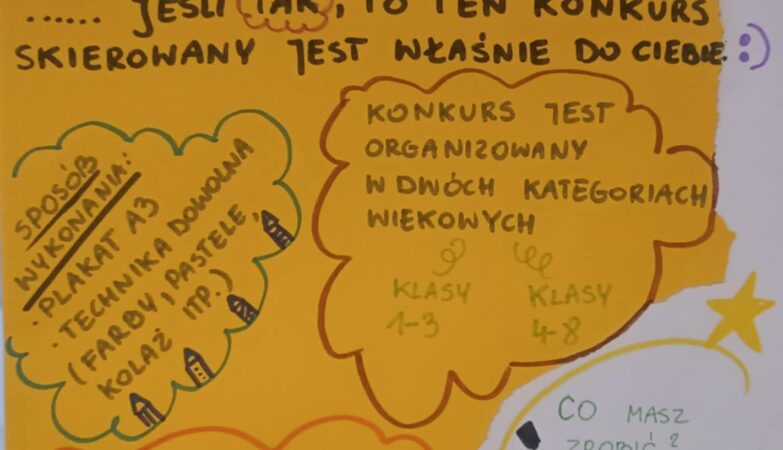 ...... JEŚLI TAK, TO TEN KONKURS
SKIEROWANY JEST WŁAŚNIE DO CIEBIE. :)
SPOSÓB
WYKONANIA:
· PLAKAT A3
· TECHNIKA DOWOLNA
(FARBY, PASTELE,
KOLAŻ ITP.)
KONKURS JEST
ORGANIZOWANY
W DWÓCH KATEGORIACH
WIEKOWYCH
KLASY
1-3
KLASY
4-8
CO MASZ
ZROBIĆ?